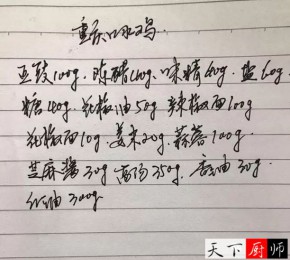 重庆口水鸡.
豆豉100g. 陈醋140g、味精40g. 盐60g.
糖140g. 花椒油50g 辣椒面100g
花椒面10g. 姜末20g. 蒜蓉100g.
芝麻酱30g 高汤350g. 香油30g.
红油300g
天下厨师